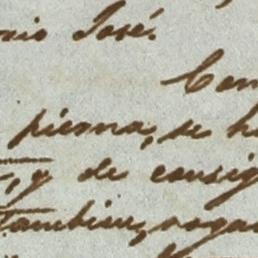 nio José.
Com
pierna, se h
, y de consig
tambien, roga